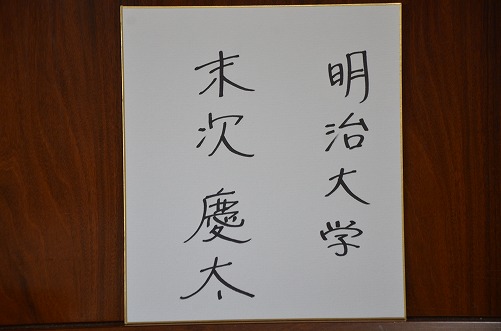 明治大学
末次慶太